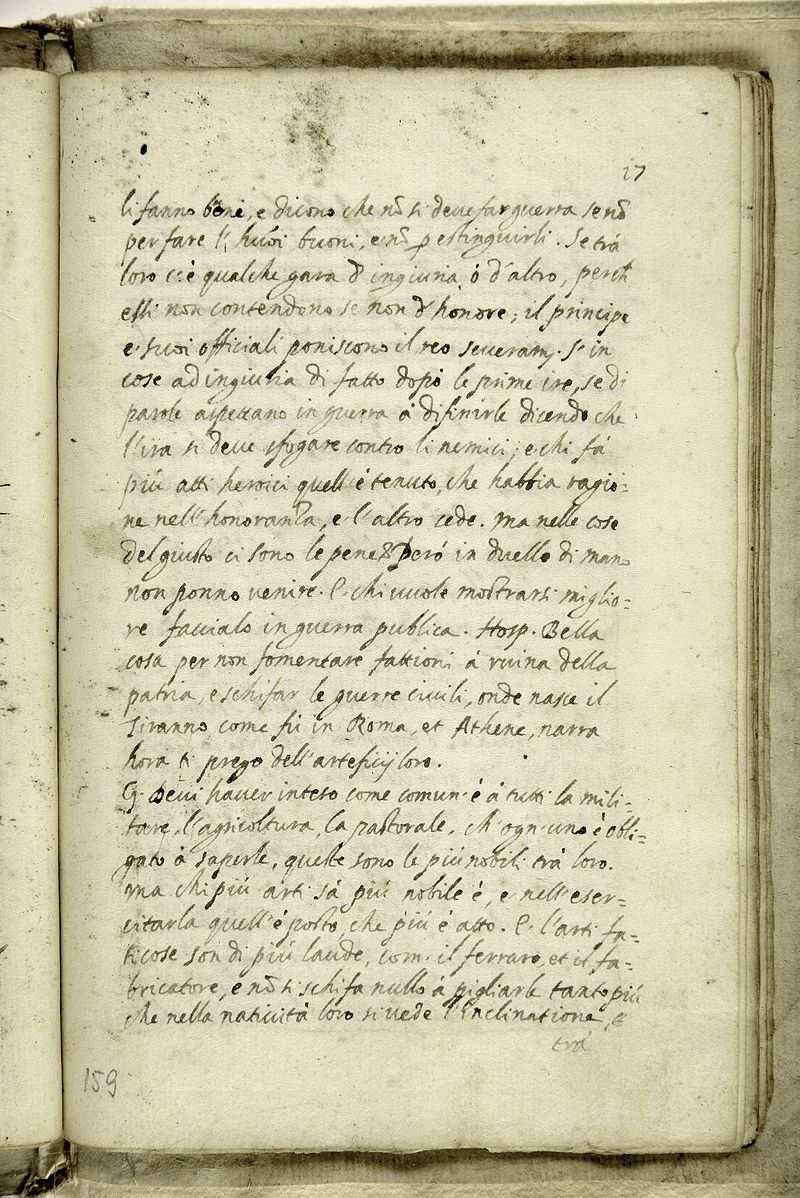 17
li fanno bene, e dicono che nõ si deve far guerra se nõ
per fare l'huõi buoni, e nõ p estinguirli. Se trà
loro c'è qualche gara d'ingiuria, ò d'altro, perch
essi non contendono se non d'honore; il principe
e suoi officiali poniscono il reo severam. s'in
cose ad ingiuria di fatto dopò le prime ire, se di
parole aspettano in guerra à difinirle dicendo che
l'ira si deve sfogare contro li nemici; e chi fà
più atti heroici quell'è tenuto, che habbia ragio=
ne nell'honoranza, e l'altro cede. Ma nelle cose
del giusto ci sono le pene. Però in duello di mano
non ponno venire. E chi vuole mostrarsi miglio=
re faccialo in guerra publica. Hosp. Bella
cosa per non fomentare fattioni à ruina della
patria, e schifar le guerre civili, onde nasce il
Tiranno come fù in Roma, et Athene, narra
hora ti prego dell'arteficij loro.
G. Devi haver inteso come comun'è à tutti la mili=
tare, l'agricoltura, la pastorale, ch'ogn'uno è obli=
gato à saperle, queste sono le più nobili trà loro.
ma chi più arti sà più nobile è, e nell'eser=
citarla quell'è posto, che più è atto. E l'arti fa=
ticose son di più laude, com'il ferraro, et il fa=
bricatore, e nõ si schifa nullo à pigliarle tanto più
che nella natività loro si vede l'Inclinatione, e
trà
159